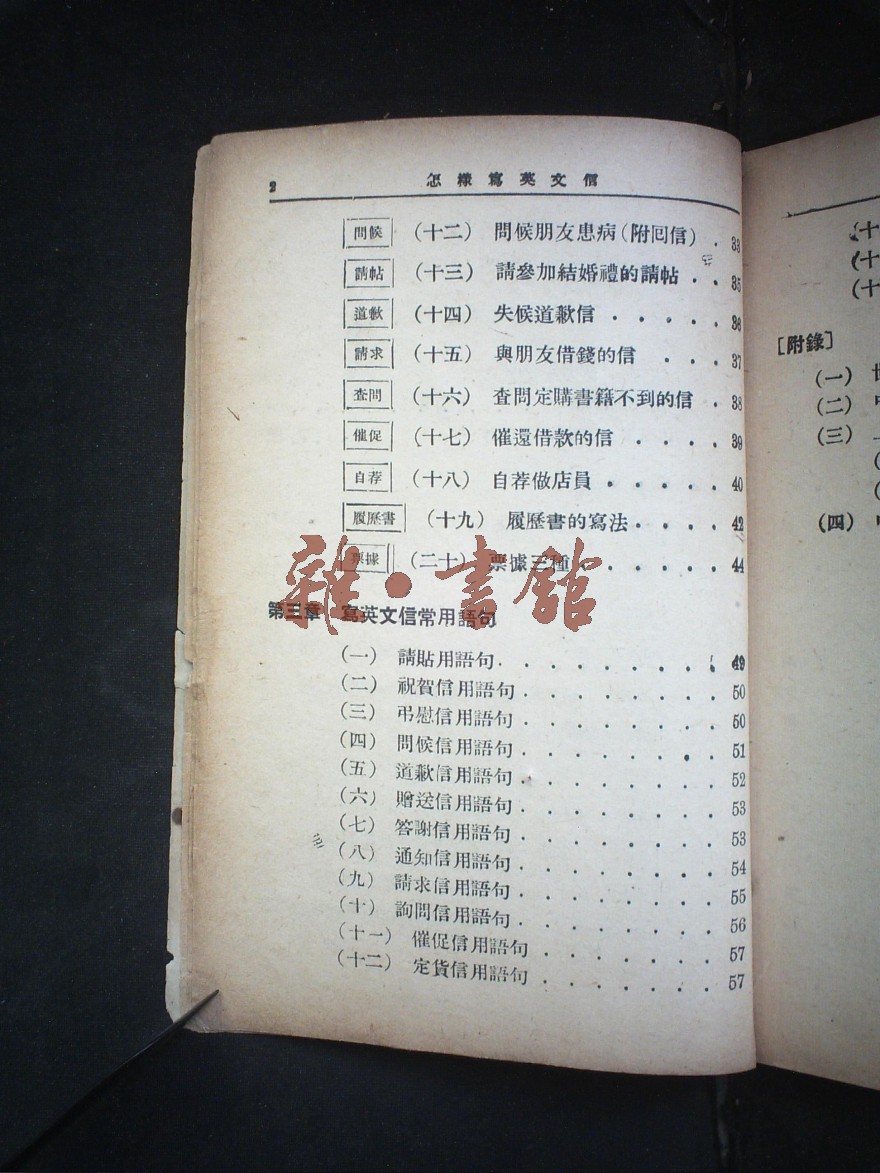 2 怎樣寫英文信
問候 (十二) 問候朋友患病(附回信) . 33
請帖 (十三) 請參加結婚禮的請帖 . . 35
道歉 (十四) 失候道歉信 . . . . . 36
請求 (十五) 與朋友借錢的信 . . . 37
查問 (十六) 查問定購書籍不到的信 . 38
催促 (十七) 催還借款的信 . . . . 39
自荐 (十八) 自荐做店員 . . . . . 40
履歷書 (十九) 履歷書的寫法 . . . . 42
票據 (二十) 票據三種 . . . . . . 44
雜·書館
第三章 寫英文信常用語句
(一) 請貼用語句 . . . . . . . . . 49
(二) 祝賀信用語句 . . . . . . . . 50
(三) 弔慰信用語句 . . . . . . . . 50
(四) 問候信用語句 . . . . . . . . 51
(五) 道歉信用語句 . . . . . . . . 52
(六) 贈送信用語句 . . . . . . . . 53
(七) 答謝信用語句 . . . . . . . . 53
(八) 通知信用語句 . . . . . . . . 54
(九) 請求信用語句 . . . . . . . . 55
(十) 詢問信用語句 . . . . . . . . 56
(十一) 催促信用語句 . . . . . . . . 57
(十二) 定貨信用語句 . . . . . . . . 57
(十
(十
(十
[附錄]
(一)
(二)
(三)
(四)